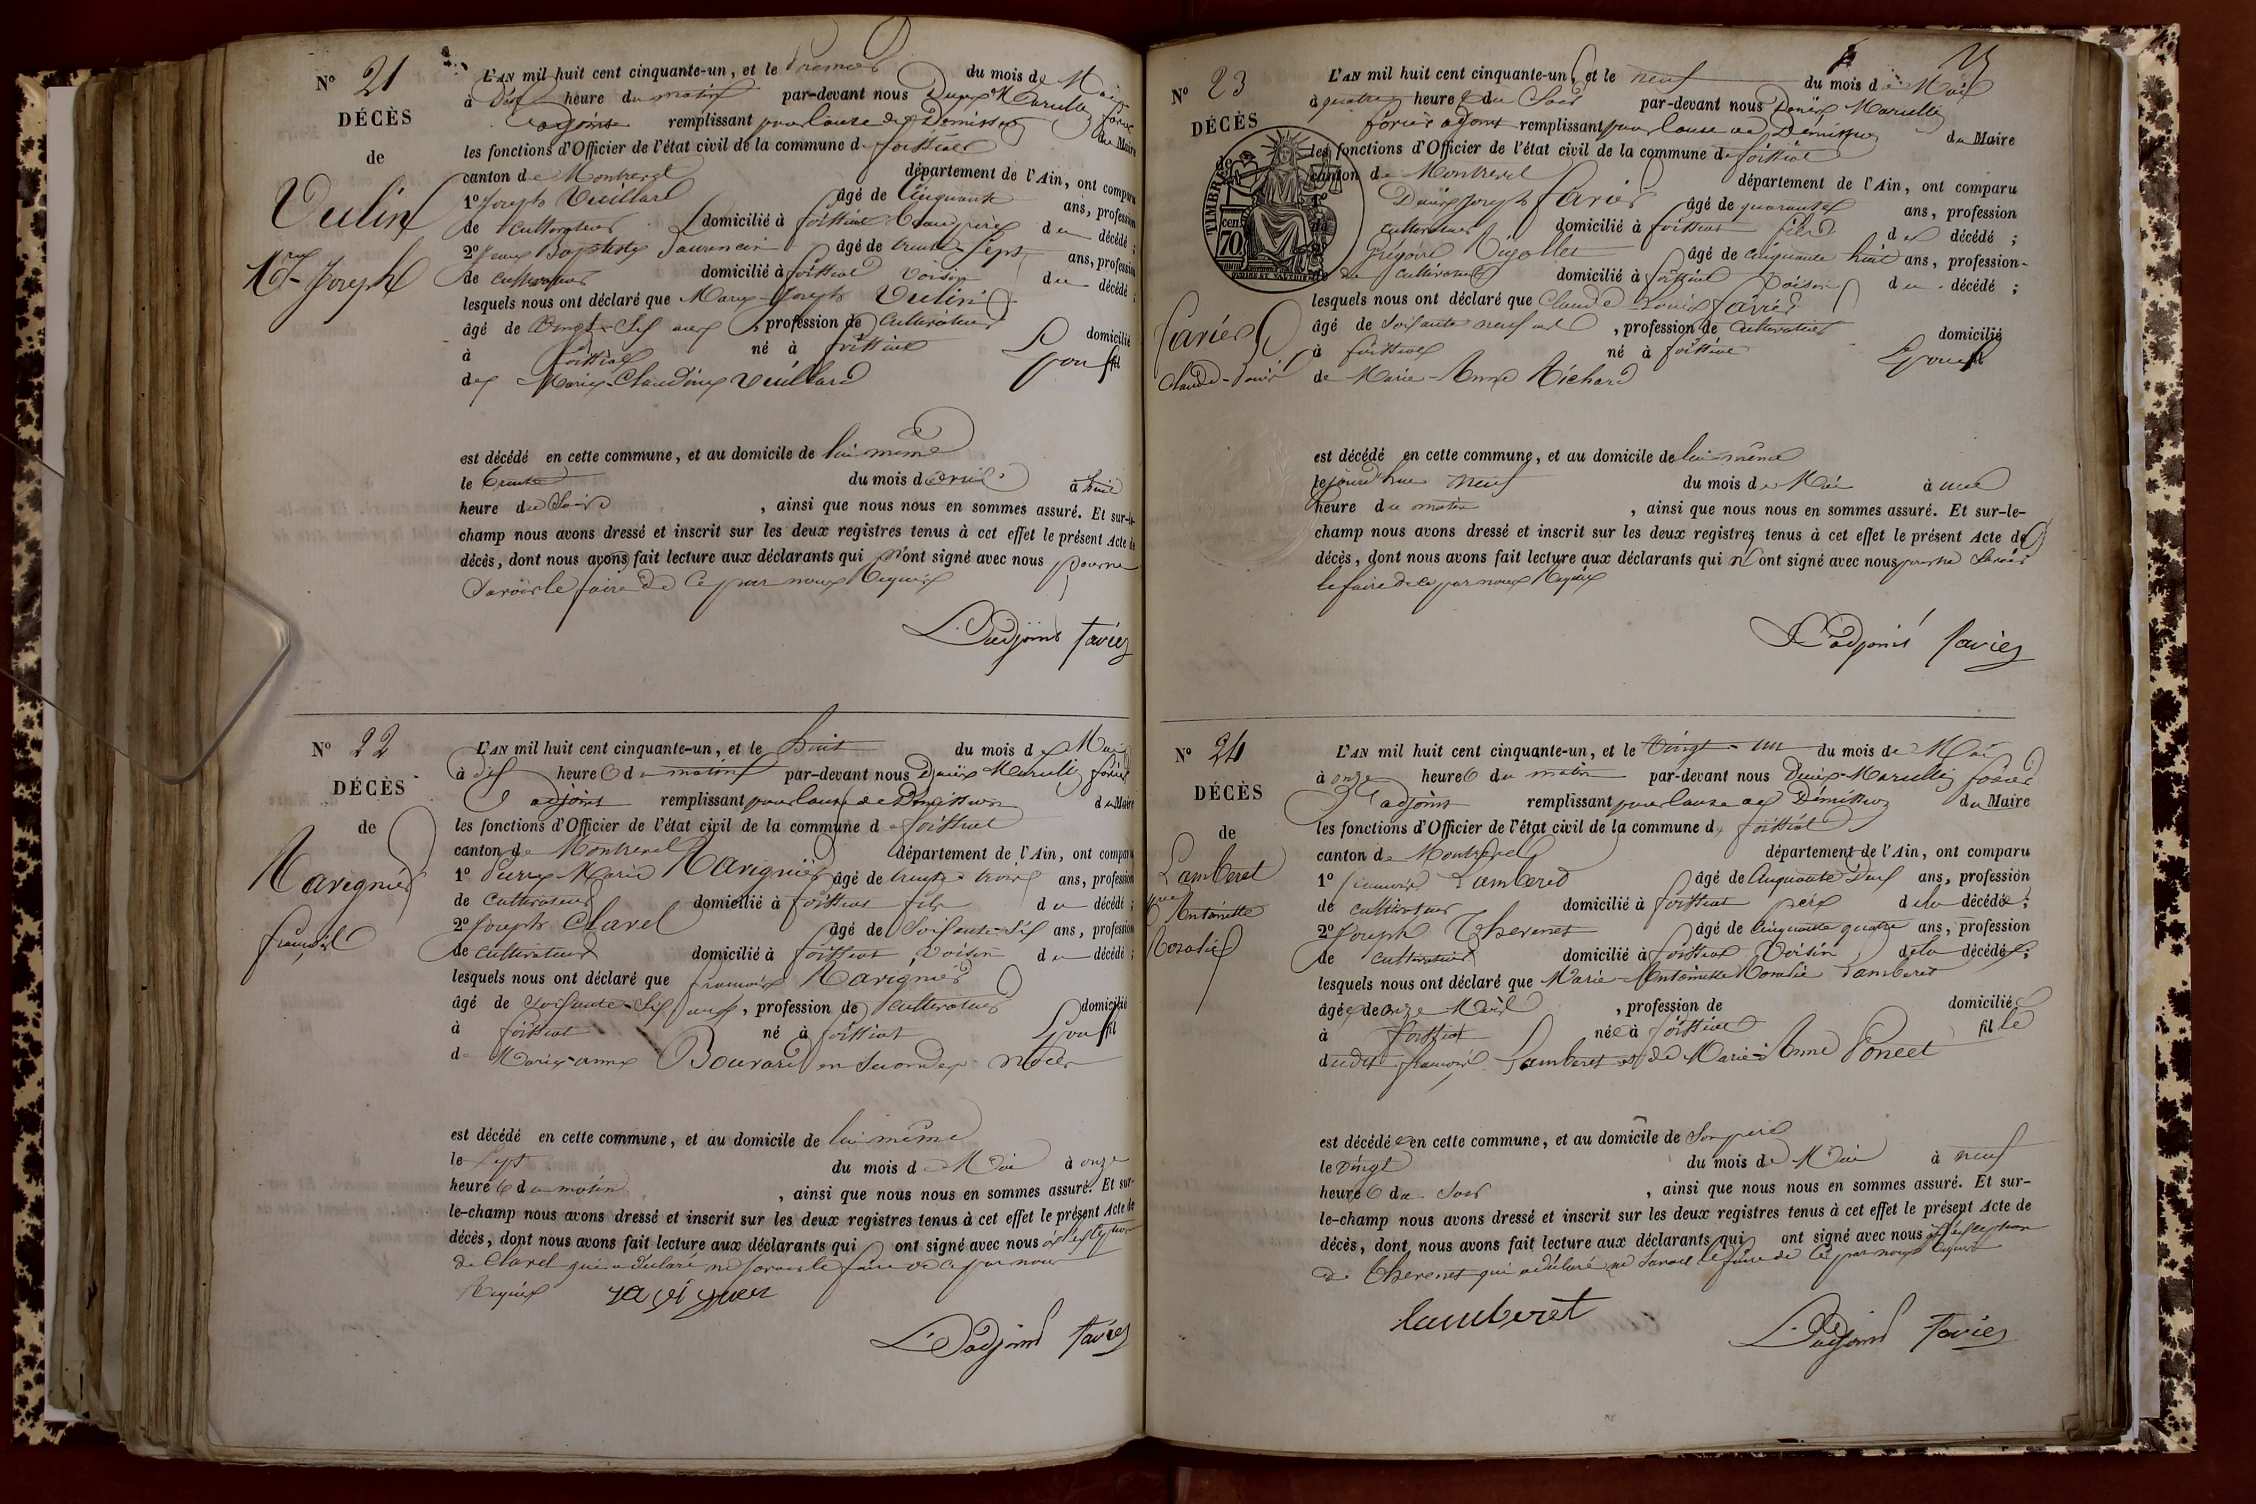 N° 21
DÉCÈS
de
Vulin
Mie Joseph
L'AN mil huit cent cinquante-un, et le Premier du mois de Mai
à dix heure du matin par-devant nous Marcellin Favier
adjoint remplissant pour cause de Démission du Maire
les fonctions d'Officier de l'état civil de la commune de foissiat
canton de Montrevel département de l'Ain, ont comparu
1° Joseph Vuillard âgé de Cinquante ans, profession
de cultivateur domicilié à foissiat beau père du décédé ;
2° Jean Baptiste âgé de trente sept ans, profession
de cultivateur domicilié à foissiat voisin du décédé ;
lesquels nous ont déclaré que Marie Joseph Vulin
âgé de Vingt-six ans, profession de Cultivateur domicilié
à foissiat né à foissiat Epoux
de Marie-Claudine Vuillard
est décédé en cette commune, et au domicile de lui même
le trente du mois d'avril à huit
heure du Soir, ainsi que nous nous en sommes assuré. Et sur-le-
champ nous avons dressé et inscrit sur les deux registres tenus à cet effet le présent Acte de
décès, dont nous avons fait lecture aux déclarants qui n'ont signé avec nous pour ne
Savoir le faire de ce par nous Requis
L'adjoint Favier
N° 22
DÉCÈS
de
Ravignier
françois
L'AN mil huit cent cinquante-un, et le huit du mois de Mai
à dix heure du matin par-devant nous Marcellin favier
adjoint remplissant pour cause de Démission du Maire
les fonctions d'Officier de l'état civil de la commune de foissiat
canton de Montrevel département de l'Ain, ont comparu
1° Pierre Marie Ravignier âgé de trente-trois ans, profession
de cultivateur domicilié à foissiat fils du décédé ;
2° Joseph Clavel âgé de Soixante-six ans, profession
de cultivateur domicilié à foissiat Voisin du décédé ;
lesquels nous ont déclaré que françois Ravignier
âgé de soixante-six ans, profession de cultivateur domicilié
à foissiat né à foissiat Epoux
de Marie-anne Bouvard en Secondes noces
est décédé en cette commune, et au domicile de lui même
le sept du mois de Mai à onze
heure du matin, ainsi que nous nous en sommes assuré. Et sur-
le-champ nous avons dressé et inscrit sur les deux registres tenus à cet effet le présent Acte de
décès, dont nous avons fait lecture aux déclarants qui ont signé avec nous à l'exception
de Clavel qui a déclaré ne savoir le faire de ce par nous
Requis ravignier
L'adjoint Favier
N° 23
DÉCÈS
de
Favier
Claude-Louis
TIMBRE
70
L'AN mil huit cent cinquante-un, et le neuf du mois de Mai
à quatre heure du Soir par-devant nous Marcellin
favier adjoint remplissant pour cause de Démission du Maire
les fonctions d'Officier de l'état civil de la commune de foissiat
canton de Montrevel département de l'Ain, ont comparu
Joseph Favier âgé de quarante ans, profession
cultivateur domicilié à foissiat fils du décédé ;
Grégoire Rigollet âgé de cinquante huit ans, profession-
de cultivateur domicilié à foissiat Voisin du décédé ;
lesquels nous ont déclaré que Claude Louis favier
âgé de Soixante neuf ans, profession de cultivateur domicilié
à foissiat né à foissiat Epoux
de Marie-Anne Richard
est décédé en cette commune, et au domicile de lui même
le jourd'hui neuf du mois de Mai à une
heure du matin, ainsi que nous nous en sommes assuré. Et sur-le-
champ nous avons dressé et inscrit sur les deux registres tenus à cet effet le présent Acte de
décès, dont nous avons fait lecture aux déclarants qui n'ont signé avec nous pour ne Savoir
le faire de ce par nous Requis
L'adjoint favier
N° 24
DÉCÈS
de
Lamberet
Mie Antoinette
Rosalie
L'AN mil huit cent cinquante-un, et le Vingt-un du mois de Mai
à onze heure du matin par-devant nous Marcellin favier
adjoint remplissant pour cause de Démission du Maire
les fonctions d'Officier de l'état civil de la commune de foissiat
canton de Montrevel département de l'Ain, ont comparu
1° françois Lamberet âgé de Cinquante deux ans, profession
de cultivateur domicilié à foissiat père de la décédée ;
2° Joseph Thevenet âgé de Cinquante quatre ans, profession
de cultivateur domicilié à foissiat Voisin de la décédée ;
lesquels nous ont déclaré que Marie-Antoinette Rosalie Lamberet
âgée de onze Mois, profession de domiciliée
à foissiat née à foissiat fille
dudit françois Lamberet et de Marie-Anne Poncet
est décédée en cette commune, et au domicile de Son père
le Vingt du mois de Mai à neuf
heure du Soir, ainsi que nous nous en sommes assuré. Et sur-
le-champ nous avons dressé et inscrit sur les deux registres tenus à cet effet le présent Acte de
décès, dont nous avons fait lecture aux déclarants qui ont signé avec nous à l'exception
de Thevenet qui a déclaré ne Savoir le faire de ce par nous Requis
lamberet
L'adjoint Favier